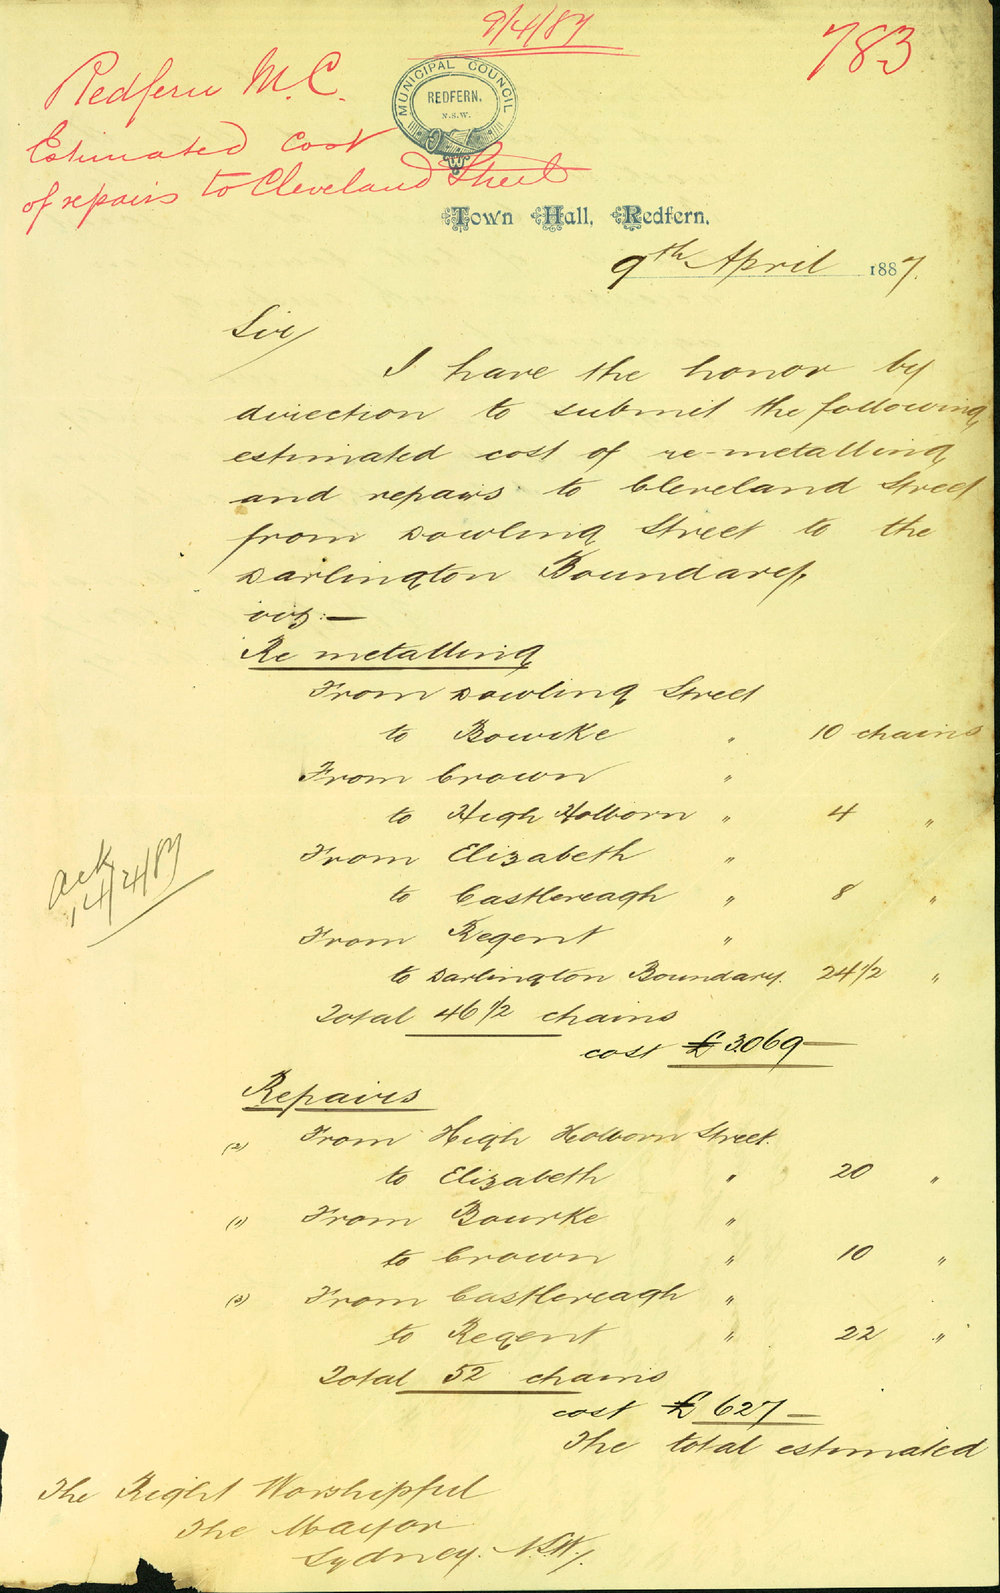 9/4/87
783
Redfern M.C.
Estimated Cost
of repairs to Cleveland Street
MUNICIPAL COUNCIL
REDFERN.
N.S.W.
Town Hall, Redfern,
9th April 1887.
Sir/
I have the honor by
direction to submit the following
estimated cost of re-metalling
and repairs to Cleveland Street
from Dowling Street to the
Darlington Boundary,
viz:—
Re metalling
From Dowling Street
to Bourke " 10 chains
From Crown "
to High Holborn " 4 "
From Elizabeth "
to Castlereagh " 8 "
From Regent "
to Darlington Boundary. 24 1/2 "
Total 46 1/2 chains
cost £3069—
Repairs
(2) From High Holborn Street.
to Elizabeth " 20 "
(1) From Bourke "
to Crown " 10 "
(3) From Castlereagh "
to Regent " 22 "
Total 52 chains
cost £627—
The total estimated
The Right Worshipful
The Mayor
Sydney. N.S.W.
Ack
14/4/87